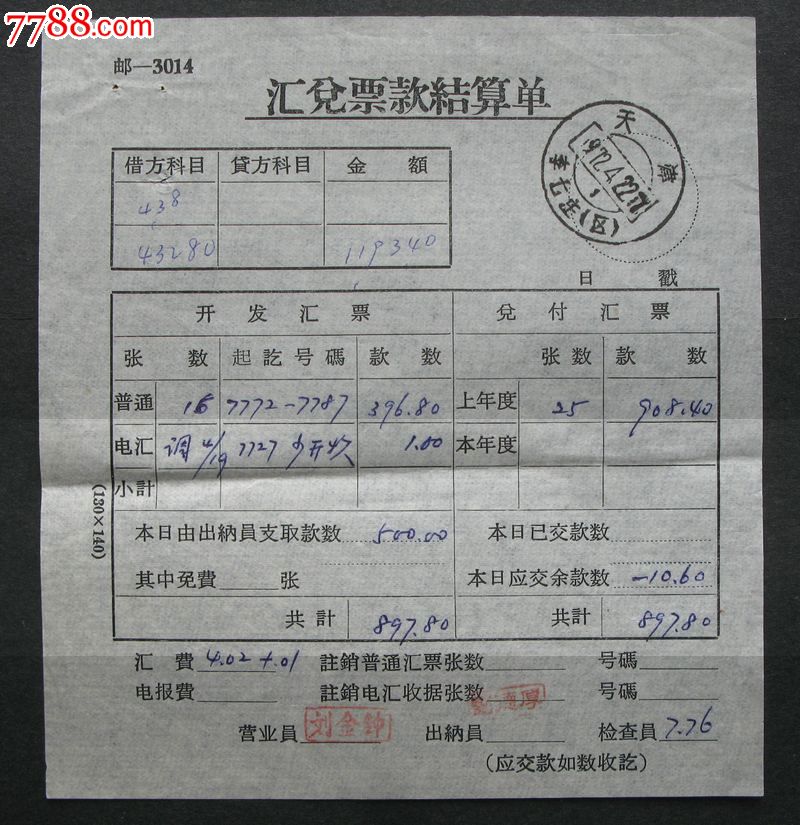 7788.com
邮—3014
汇兌票款結算单
天津
1972.4.22.17
1
七支(区)
借方科目 貸方科目 金 額
438
43280 119340
日 戳
开 发 汇 票 兌 付 汇 票
张 数 起訖号碼 款 数 张数 款 数
普通 16 7772-7787 396.80 上年度 25 908.40
电汇 调 4/19 7727 少开收 1.00 本年度
小計
本日由出納員支取款数 500.00 本日已交款数
其中免費 张 本日应交余款数 -10.60
共計 897.80 共計 897.80
(130×140)
汇 費 4.02 +.01 註銷普通汇票张数 号碼
电报費 註銷电汇收据张数 号碼
营业員 刘金钟 出納員 检查員 7.76
(应交款如数收訖)